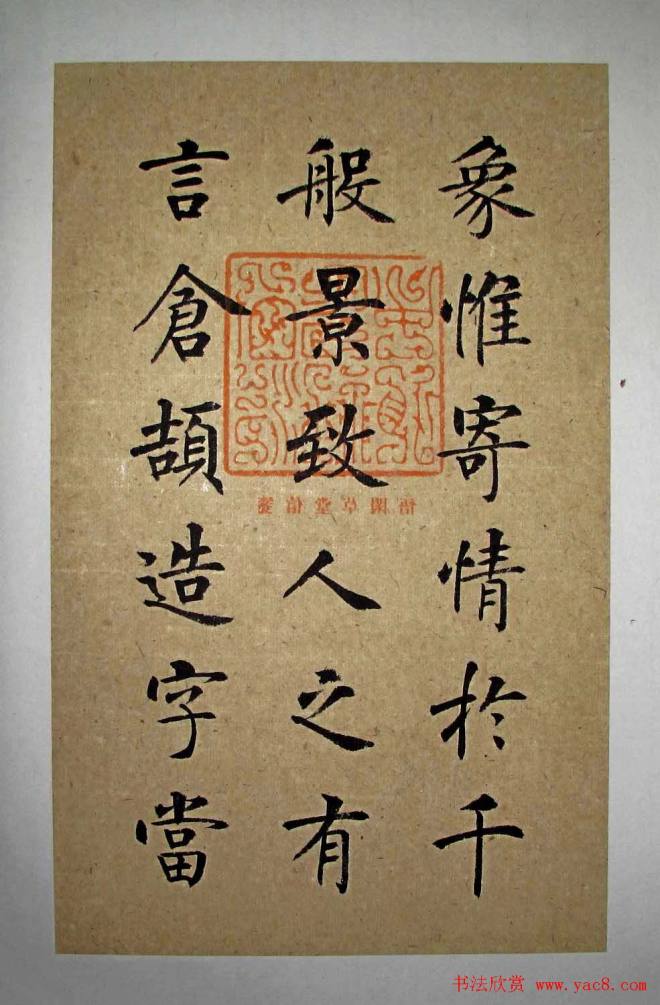 象惟寄情於千
般景致人之有
言倉頡造字當
書法欣赏 www.yac8.com